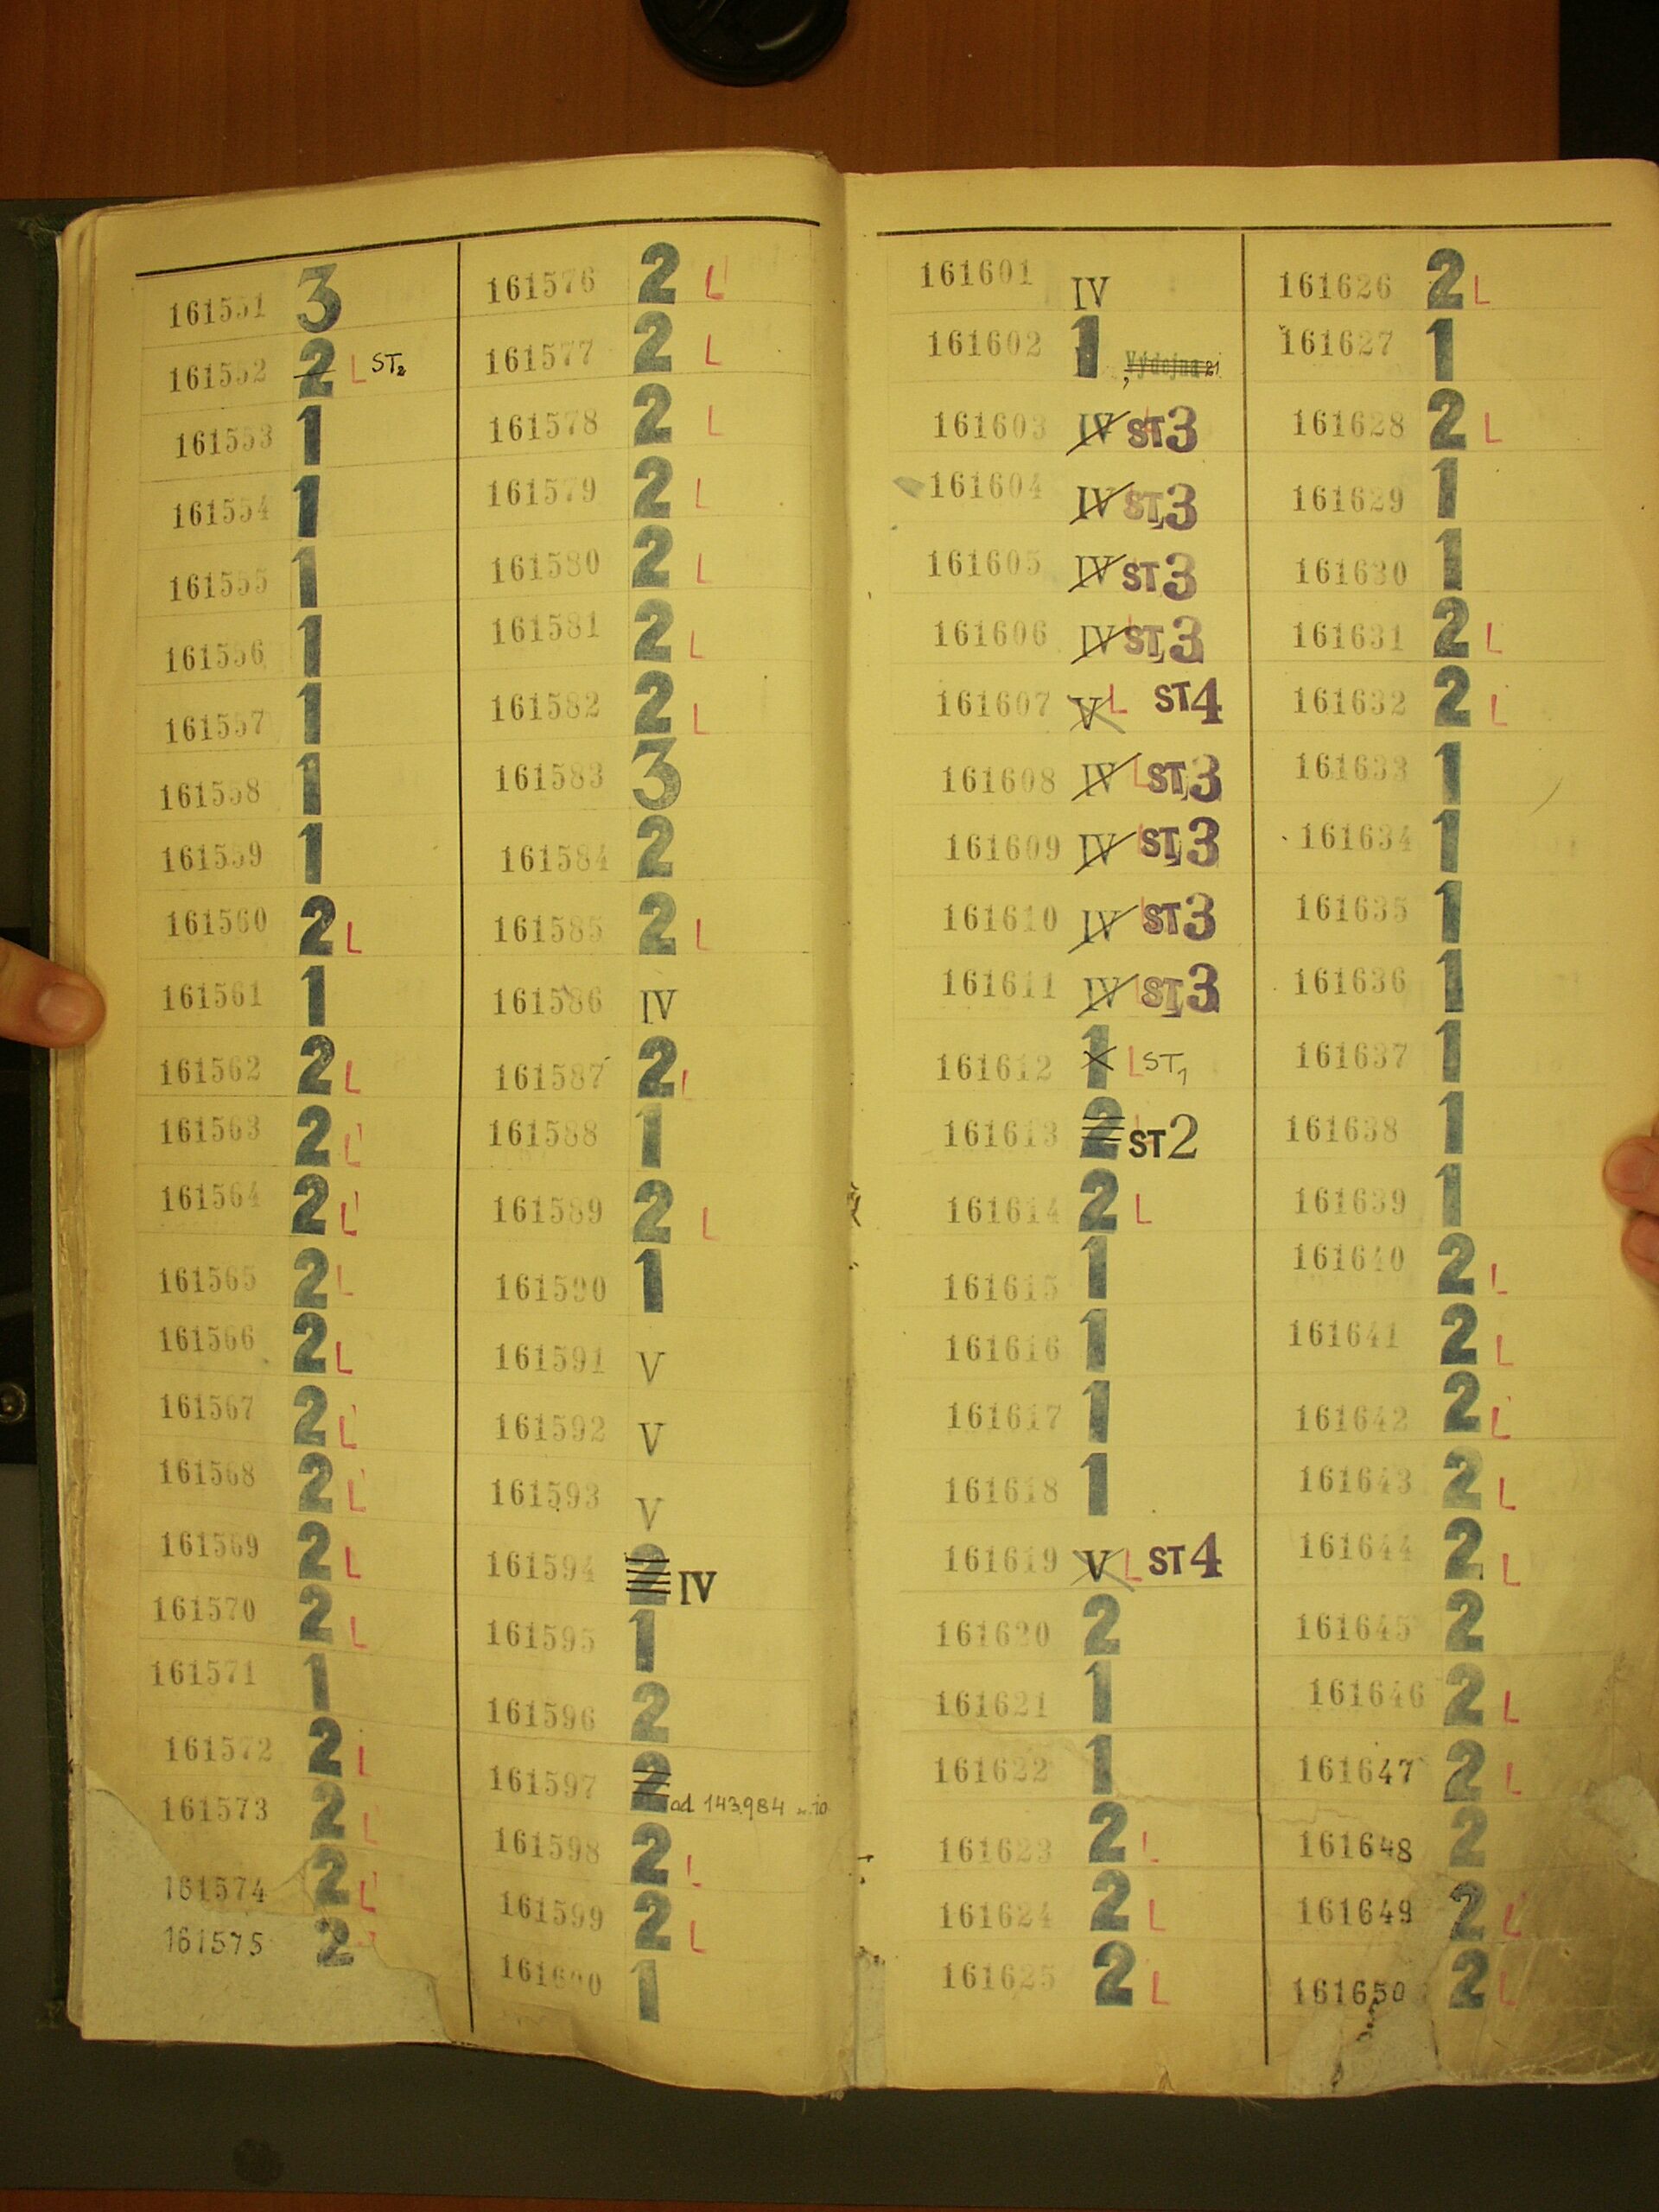 161551 3
161552 2 L ST2
161553 1
161554 1
161555 1
161556 1
161557 1
161558 1
161559 1
161560 2 L
161561 1
161562 2 L
161563 2 L
161564 2 L
161565 2 L
161566 2 L
161567 2 L
161568 2 L
161569 2 L
161570 2 L
161571 1
161572 2 L
161573 2 L
161574 2 L
161575 2
161576 2 L
161577 2 L
161578 2 L
161579 2 L
161580 2 L
161581 2 L
161582 2 L
161583 3
161584 2
161585 2 L
161586 IV
161587 2 L
161588 1
161589 2 L
161590 1
161591 V
161592 V
161593 V
161594 2 IV
161595 1
161596 2
161597 2 od 143.984
161598 2 L
161599 2 L
161600 1
161601 IV
161602 1 Výdejna
161603 IV ST3
161604 IV ST3
161605 IV ST3
161606 IV L ST3
161607 V L ST4
161608 IV L ST3
161609 IV L ST3
161610 IV L ST3
161611 IV L ST3
161612 1 L ST1
161613 2 ST2
161614 2 L
161615 1
161616 1
161617 1
161618 1
161619 V L ST4
161620 2
161621 1
161622 1
161623 2 L
161624 2 L
161625 2 L
161626 2 L
161627 1
161628 2 L
161629 1
161630 1
161631 2 L
161632 2 L
161633 1
161634 1
161635 1
161636 1
161637 1
161638 1
161639 1
161640 2 L
161641 2 L
161642 2 L
161643 2 L
161644 2 L
161645 2
161646 2 L
161647 2 L
161648 2
161649 2 L
161650 2 L